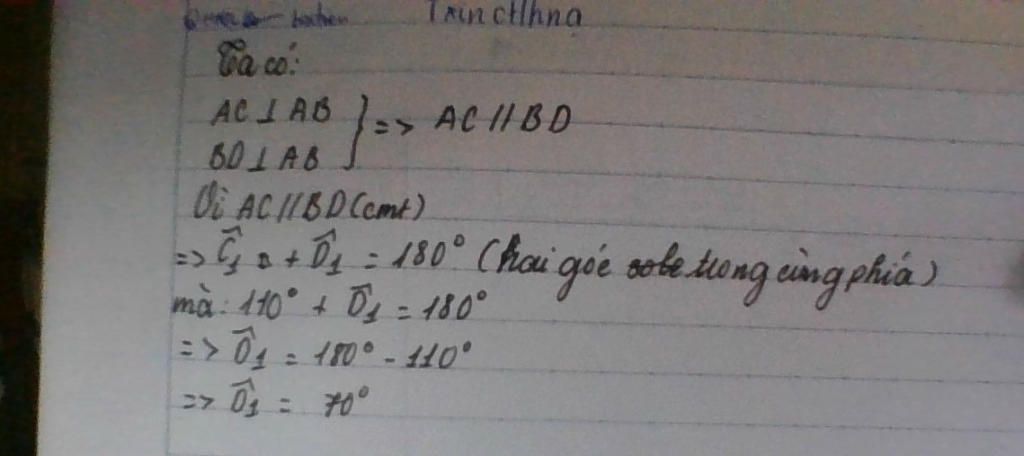 Ta có:
AC ⊥ AB
BD ⊥ AB } => AC // BD
Vì AC // BD (cmt)
=> Ĉ₁ + D̂₁ = 180° (hai góc trong cùng phía)
mà: 110° + D̂₁ = 180°
=> D̂₁ = 180° - 110°
=> D̂₁ = 70°